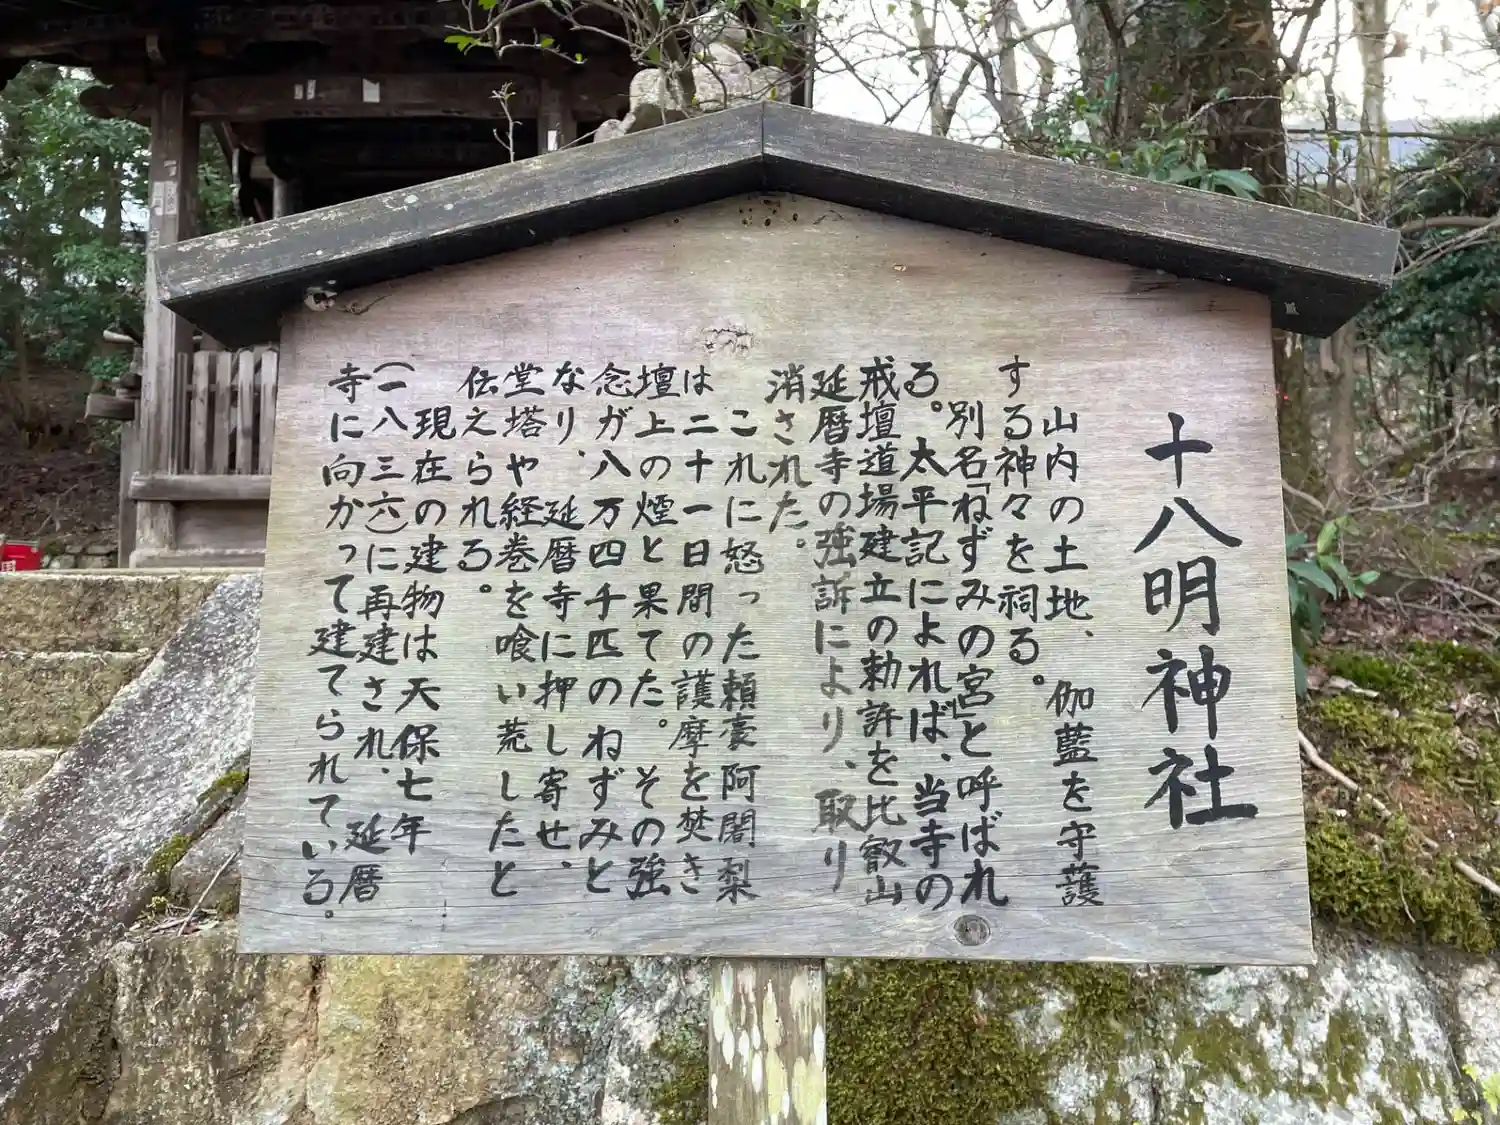 十八明神社
山内の土地、伽藍を守護
する神々を祠る。
別名「ねずみの宮」と呼ばれ
る。太平記によれば、当寺の
戒壇道場建立の勅許を比叡山
延暦寺の強訴により、取り
消された。
これに怒った頼豪阿闍梨
は二十一日間の護摩を焚き
壇上の煙と果てた。その強
念が八万四千匹のねずみと
なり、延暦寺に押し寄せ、
堂塔や経巻を喰い荒したと
伝えられる。
現在の建物は天保七年
(一八三六)に再建され、延暦
寺に向かって建てられている。